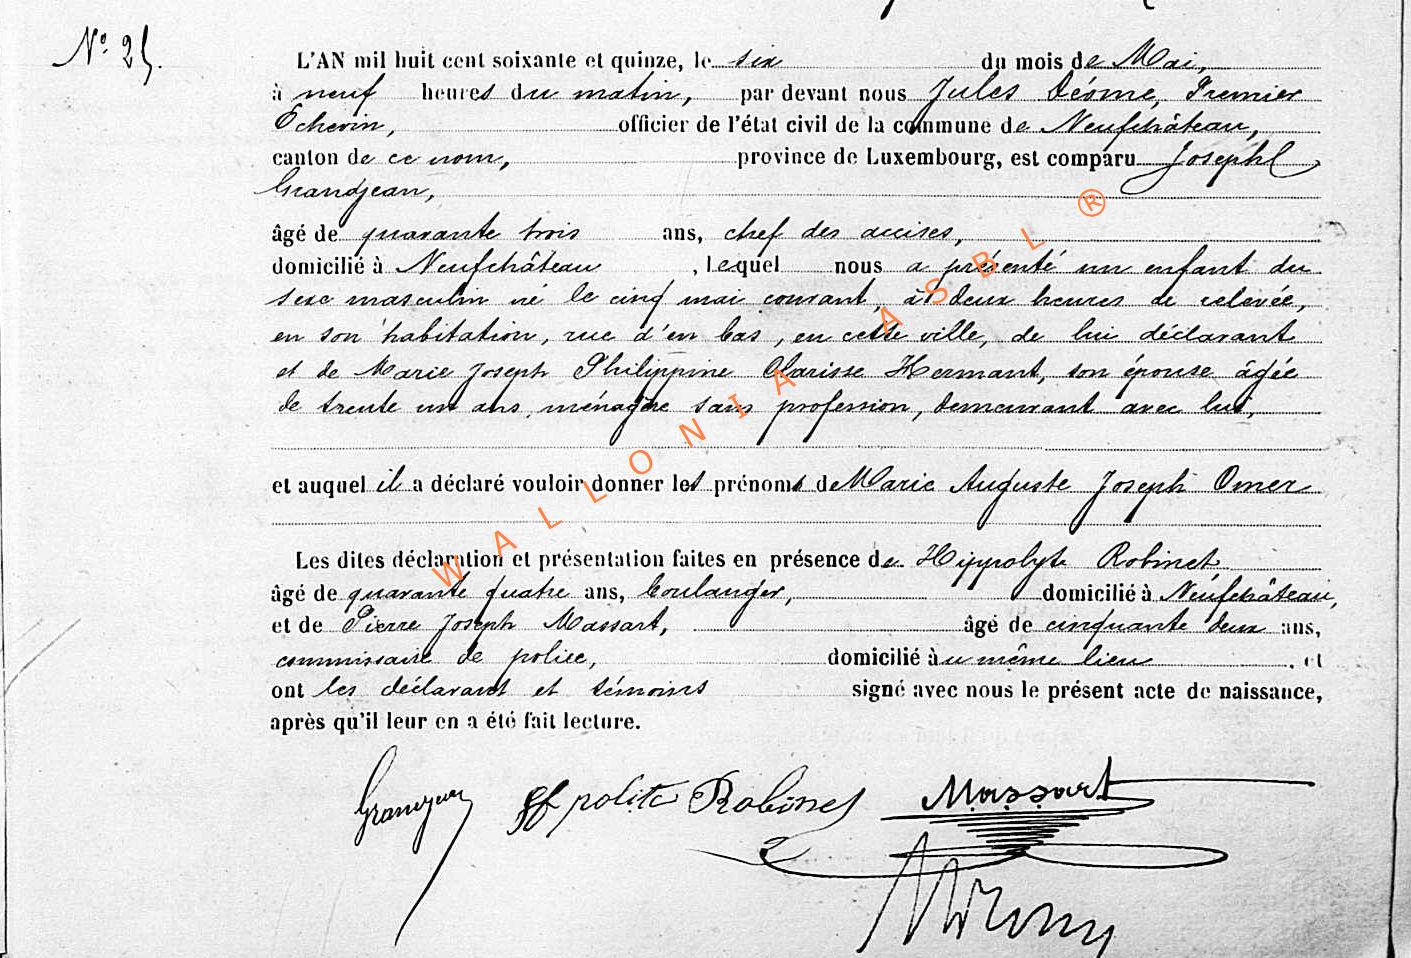 N° 25.
L'AN mil huit cent soixante et quinze, le six du mois de Mai,
à neuf heures du matin, par devant nous Jules Déome, Premier
Echevin, officier de l'état civil de la commune de Neufchâteau,
canton de ce nom, province de Luxembourg, est comparu Joseph
Grandjean,
âgé de quarante trois ans, chef des accises,
domicilié à Neufchâteau, lequel nous a présenté un enfant du
sexe masculin né le cinq mai courant, à deux heures de relevée,
en son habitation, rue d'en bas, en cette ville, de lui déclarant
et de Marie Joseph Philippine Clarisse Hermant, son épouse âgée
de trente un ans, ménagère sans profession, demeurant avec lui,
et auquel il a déclaré vouloir donner les prénoms de Marie Auguste Joseph Omer
Les dites déclaration et présentation faites en présence de Hippolyte Robinet
âgé de quarante quatre ans, boulanger, domicilié à Neufchâteau,
et de Pierre Joseph Massart, âgé de cinquante deux ans,
commissaire de police, domicilié au même lieu, et
ont les déclarant et témoins signé avec nous le présent acte de naissance,
après qu'il leur en a été fait lecture.
Grandjean Hypolite Robinet Massart
WALLONIA ASBL ®